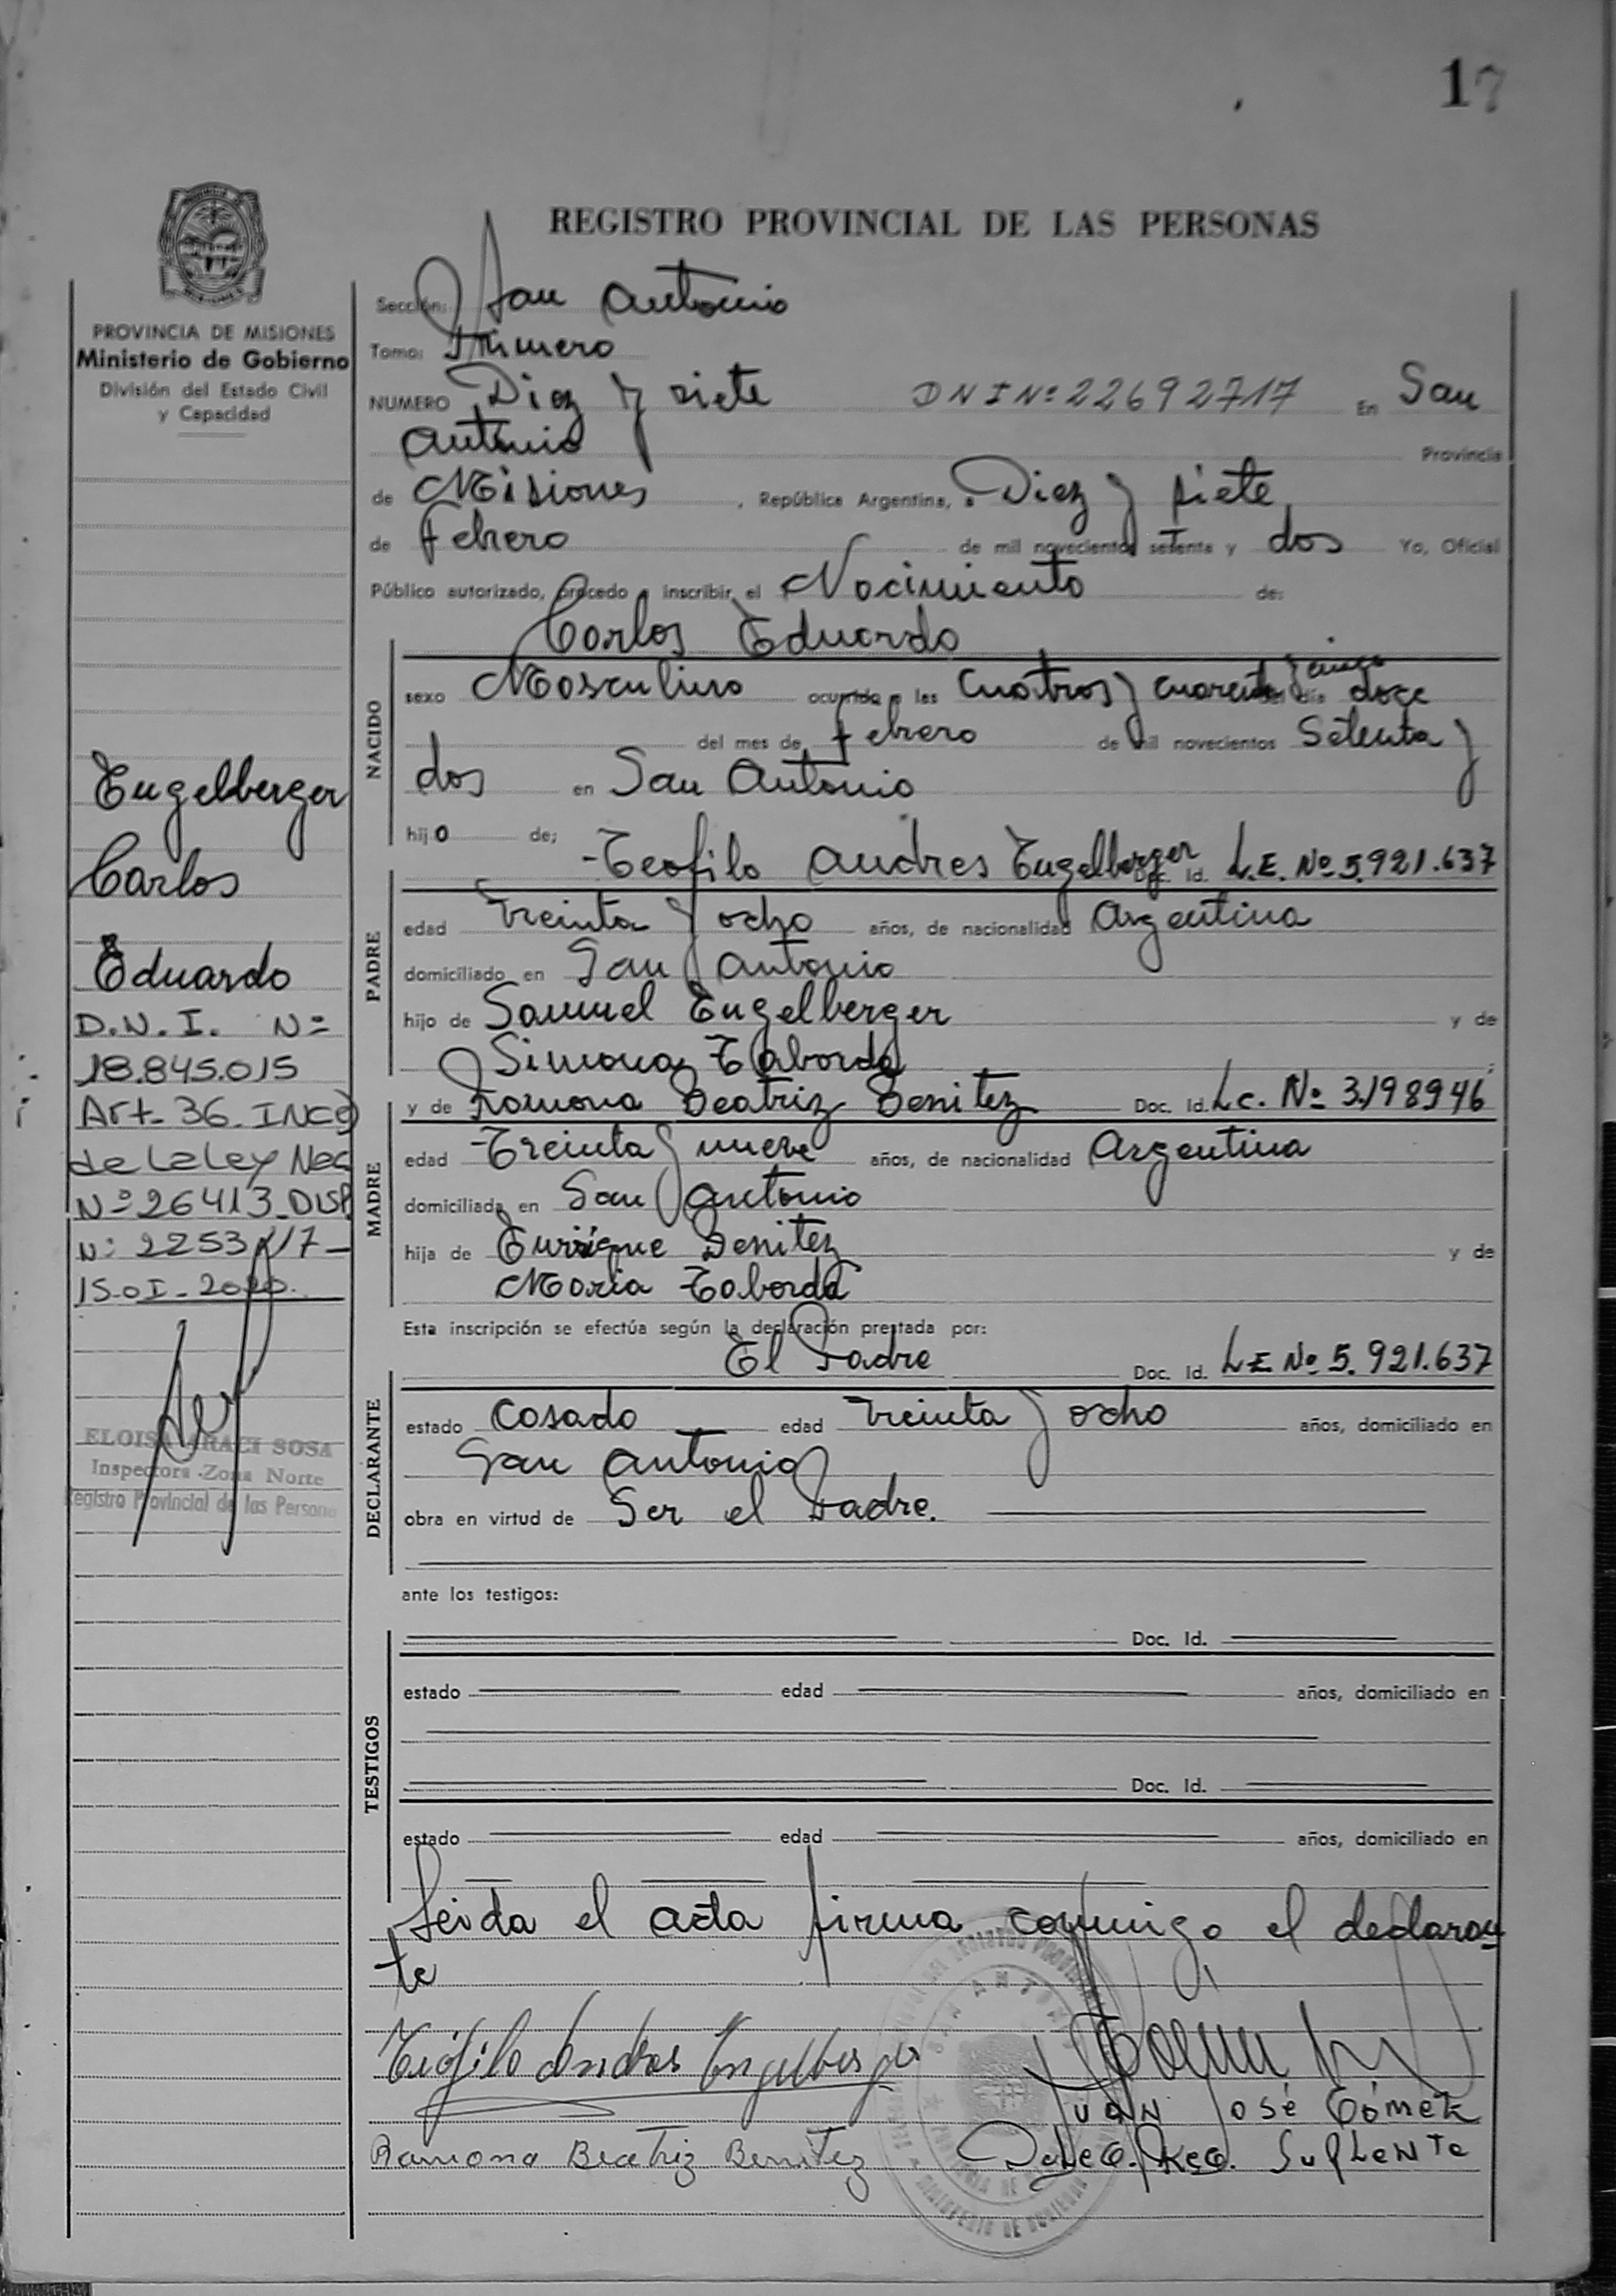 17
REGISTRO PROVINCIAL DE LAS PERSONAS
PROVINCIA DE MISIONES
Ministerio de Gobierno
División del Estado Civil
y Capacidad
Sección: San Antonio
Tomo: Primero
NUMERO Diez y siete DNI Nº 22692717 En San
Antonio Provincia
de Misiones, República Argentina, a Diez y siete
de Febrero de mil novecientos setenta y dos Yo, Oficial
Público autorizado, procedo a inscribir el Nacimiento de:
Carlos Eduardo
NACIDO
sexo Masculino ocurrido a las Cuatros y cuarenta y cinco del día doce
del mes de Febrero de mil novecientos Setenta y
dos en San Antonio
hijo de;
Teofilo Andres Engelberger Doc. Id. L.E. Nº 5.921.637
PADRE
edad Treinta y ocho años, de nacionalidad Argentina
domiciliado en San Antonio
hijo de Samuel Engelberger y de
Simona Taborda
y de Ramona Beatriz Benitez Doc. Id. L.C. Nº 3.198946
MADRE
edad Treinta y nueve años, de nacionalidad Argentina
domiciliada en San Antonio
hija de Enrrique Benitez y de
Maria Taborda
Esta inscripción se efectúa según la declaración prestada por:
El Padre Doc. Id. L E Nº 5.921.637
DECLARANTE
estado Casado edad Treinta y ocho años, domiciliado en
San Antonio
obra en virtud de Ser el Padre.
ante los testigos:
Doc. Id.
TESTIGOS
estado edad años, domiciliado en
Doc. Id.
estado edad años, domiciliado en
Leida el acta firma conmigo el declaran
te
Teofilo Andres Engelberger
JUAN JOSÉ GÓMEZ
Ramona Beatriz Benitez Deleg. Reg. Suplente
Engelberger
Carlos
Eduardo
D.N.I. Nº
18.845.015
Art. 36. INC
de La Ley Nac
Nº 26413 DISP.
Nº 2253/17-
15-01-2020.
ELOISA ARACI SOSA
Inspectora -Zona Norte
Registro Provincial de las Persona
SAN ANTONIO